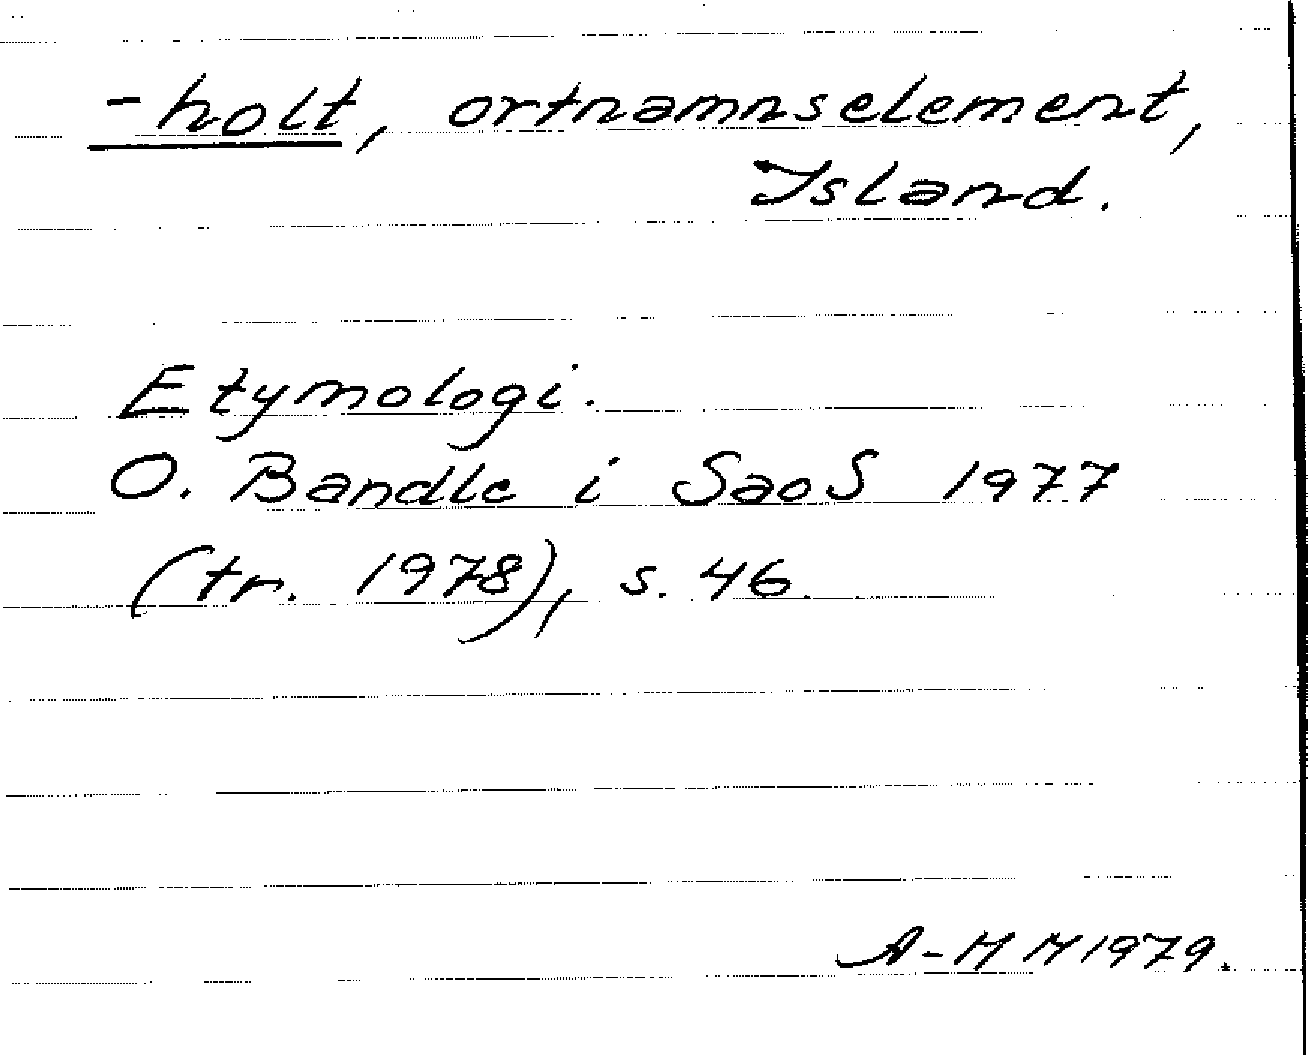 -holt, ortnamnselement,
Island.
Etymologi.
O. Bandle i SaoS 1977
(tr. 1978), s. 46.
A-M M 1979.